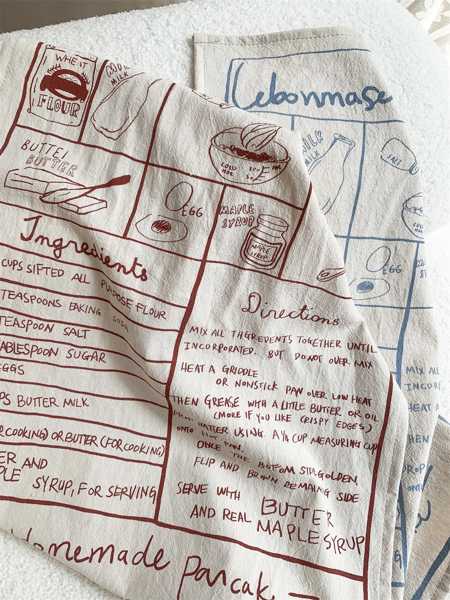 WHEAT
FLOUR
MILK
BUTTER
BUTTER
EGG
MAPLE
SYRUP
MAPLE
SYRUP
Ingredients
CUPS SIFTED ALL PURPOSE FLOUR
TEASPOONS BAKING SODA
TEASPOON SALT
TABLESPOON SUGAR
EGGS
PS BUTTER MILK
R COOKING) OR BUTTER (FOR COOKING)
ER AND
PLE SYRUP, FOR SERVING
Directions
MIX ALL INGREDIENTS TOGETHER UNTIL
INCORPORATED. BUT DO NOT OVER MIX
HEAT A GRIDDLE
OR NONSTICK PAN OVER LOW HEAT
THEN GREASE WITH A LITTLE BUTTER OR OIL
(MORE IF YOU LIKE CRISPY EDGES)
BATTER USING A 1/4 CUP MEASURING CUP
ONTO THE PAN
ONCE THE BOTTOM IS GOLDEN
FLIP AND BROWN REMAING SIDE
SERVE WITH BUTTER
AND REAL MAPLE SYRUP
Homemade Pancak
Lebonmase
MILK
EGG
MIX ALL
INCOR
HEAT A
THEN